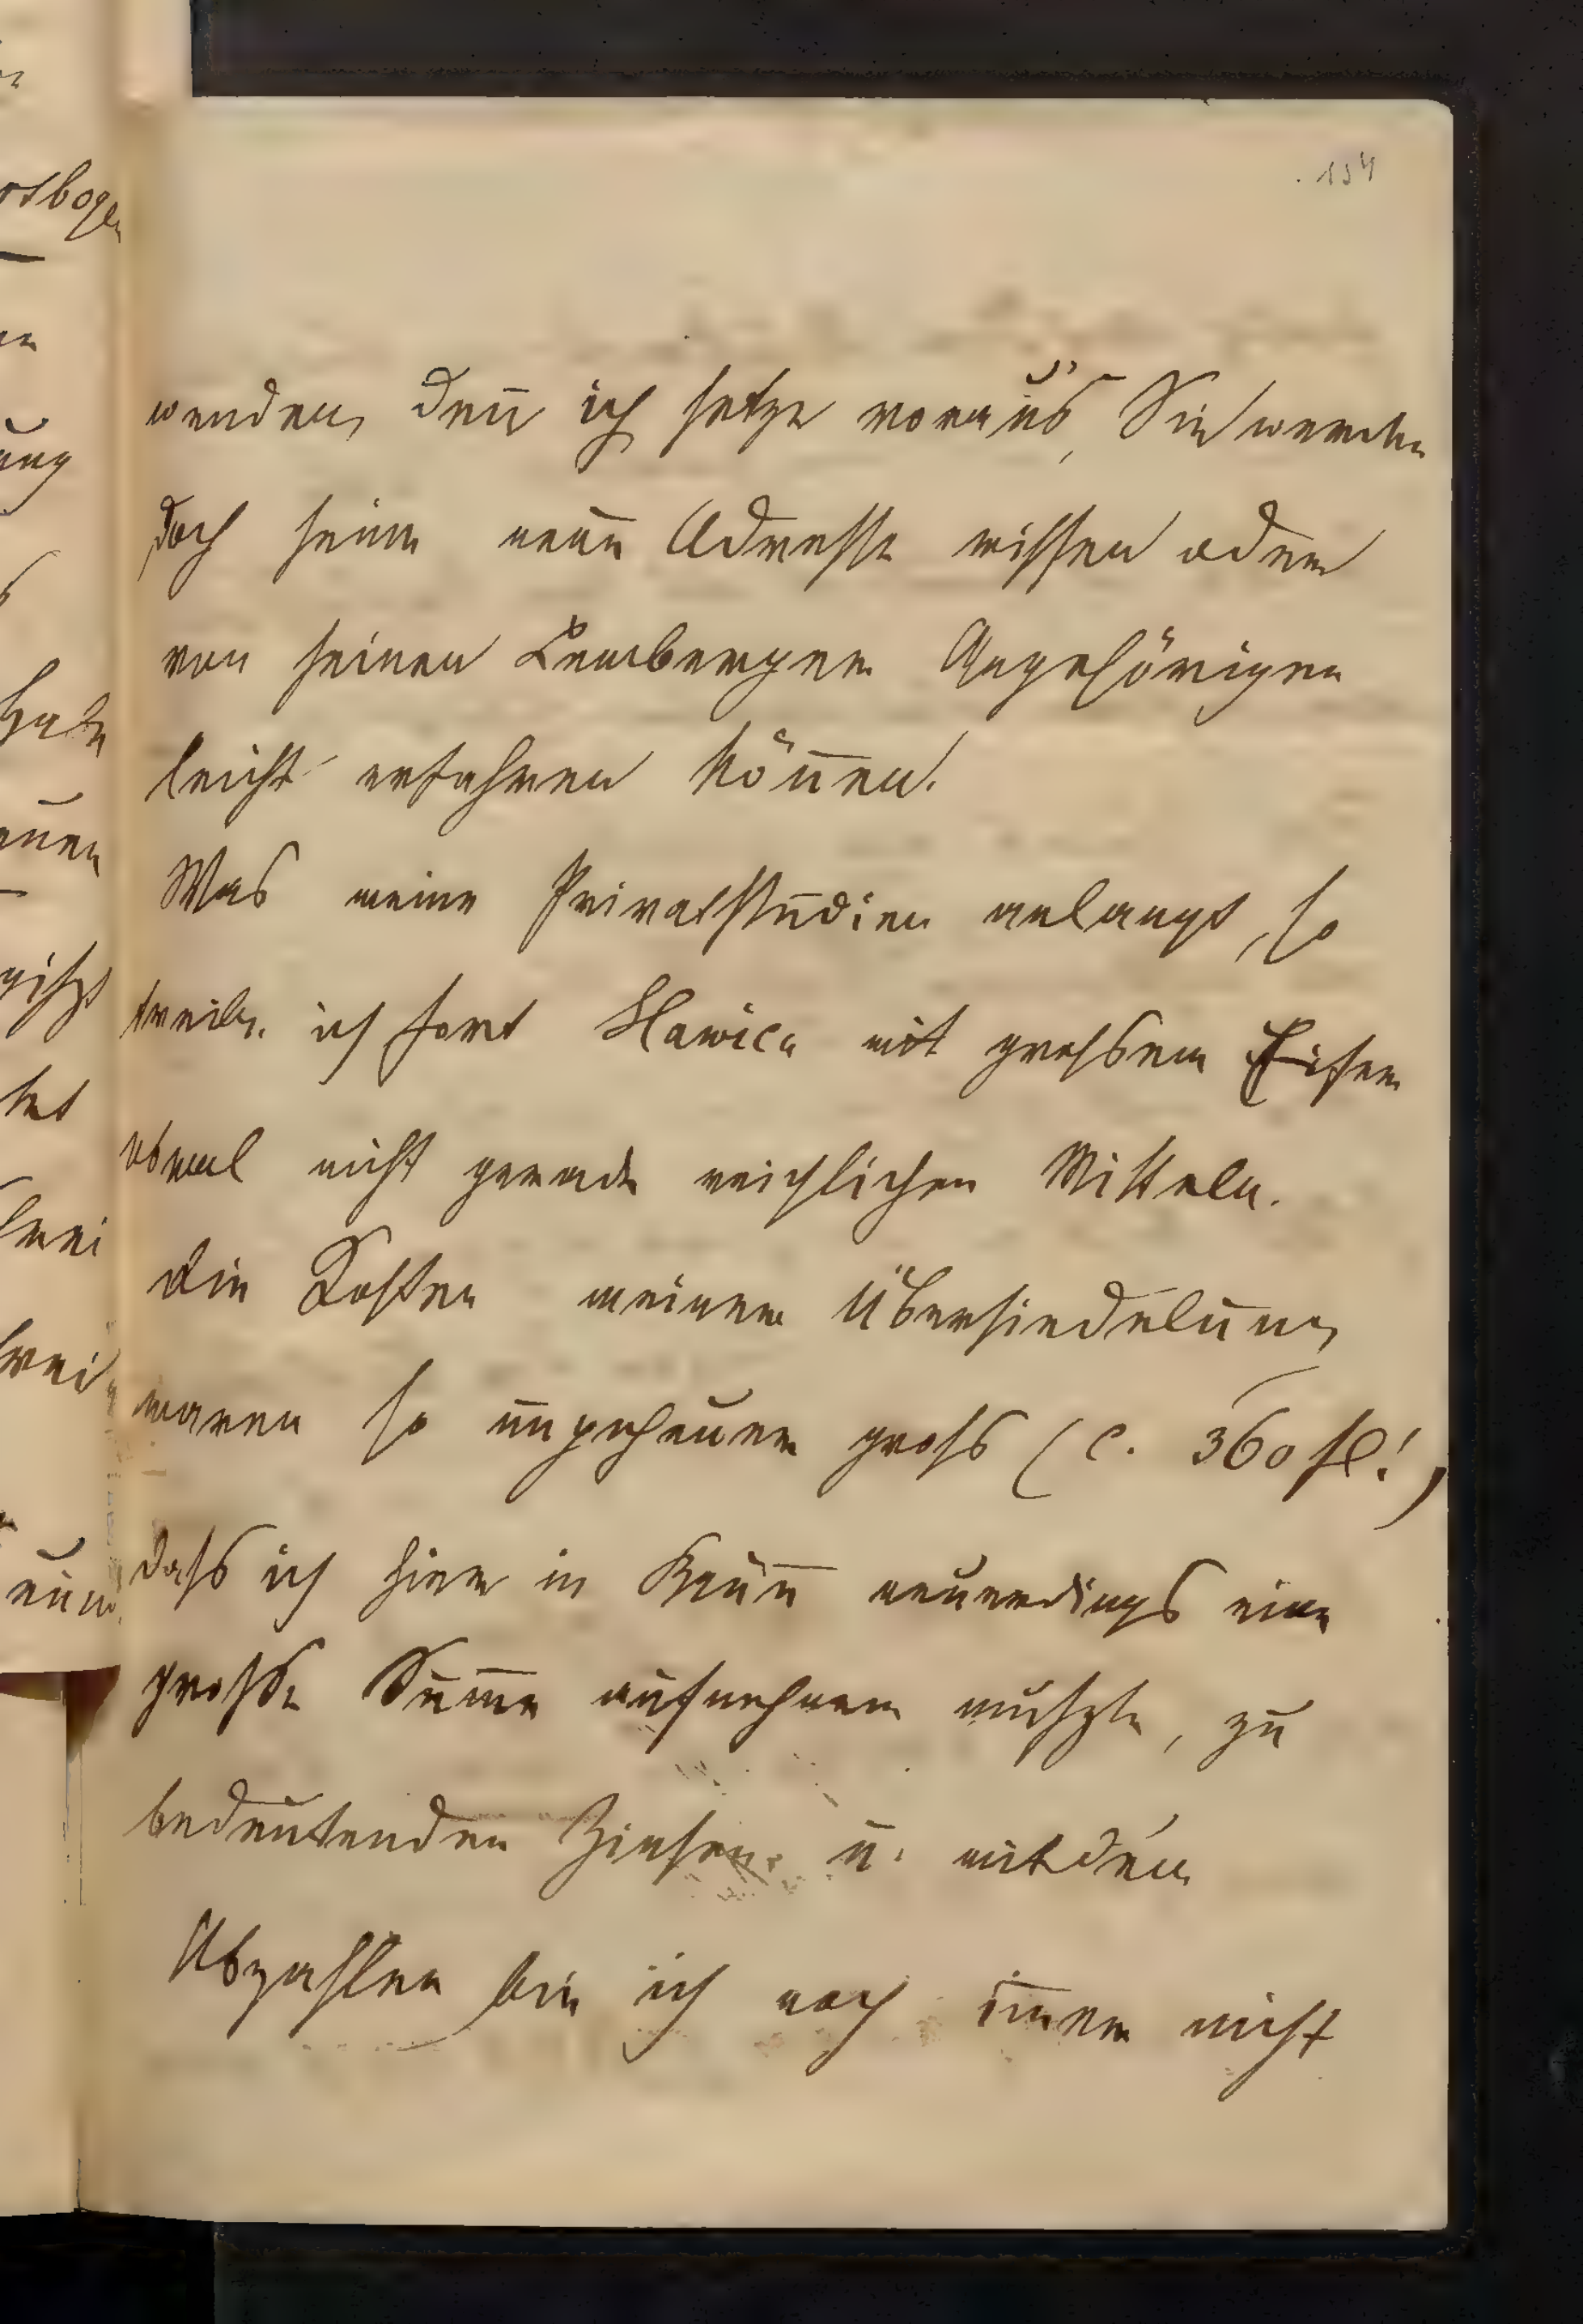 134
wenden, den̄ ich setze voraus, Sie werden
doch seine neue Adresse wissen oder
von seinen Lemberger Angehörigen
leicht erfahren kön̄en.
Was meine Privatstudien anlangt, so
treibe ich fort Slavica mit grossem Eifer
obwol nicht gerade reichlichen Mitteln.
Die Kosten meiner Übersiedelung
waren so ungeheuer gross (c. 360 fl!)
dass ich hier in Brün̄ neuerdings eine
grosse Sum̄e aufnehmen muszte, zu
bedeutenden Zinsen u. mit dem
Abzahlen bin ich noch im̄er nicht